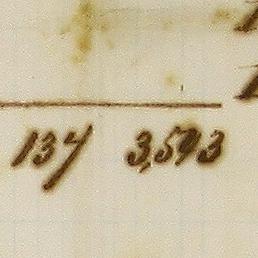 137 3,593